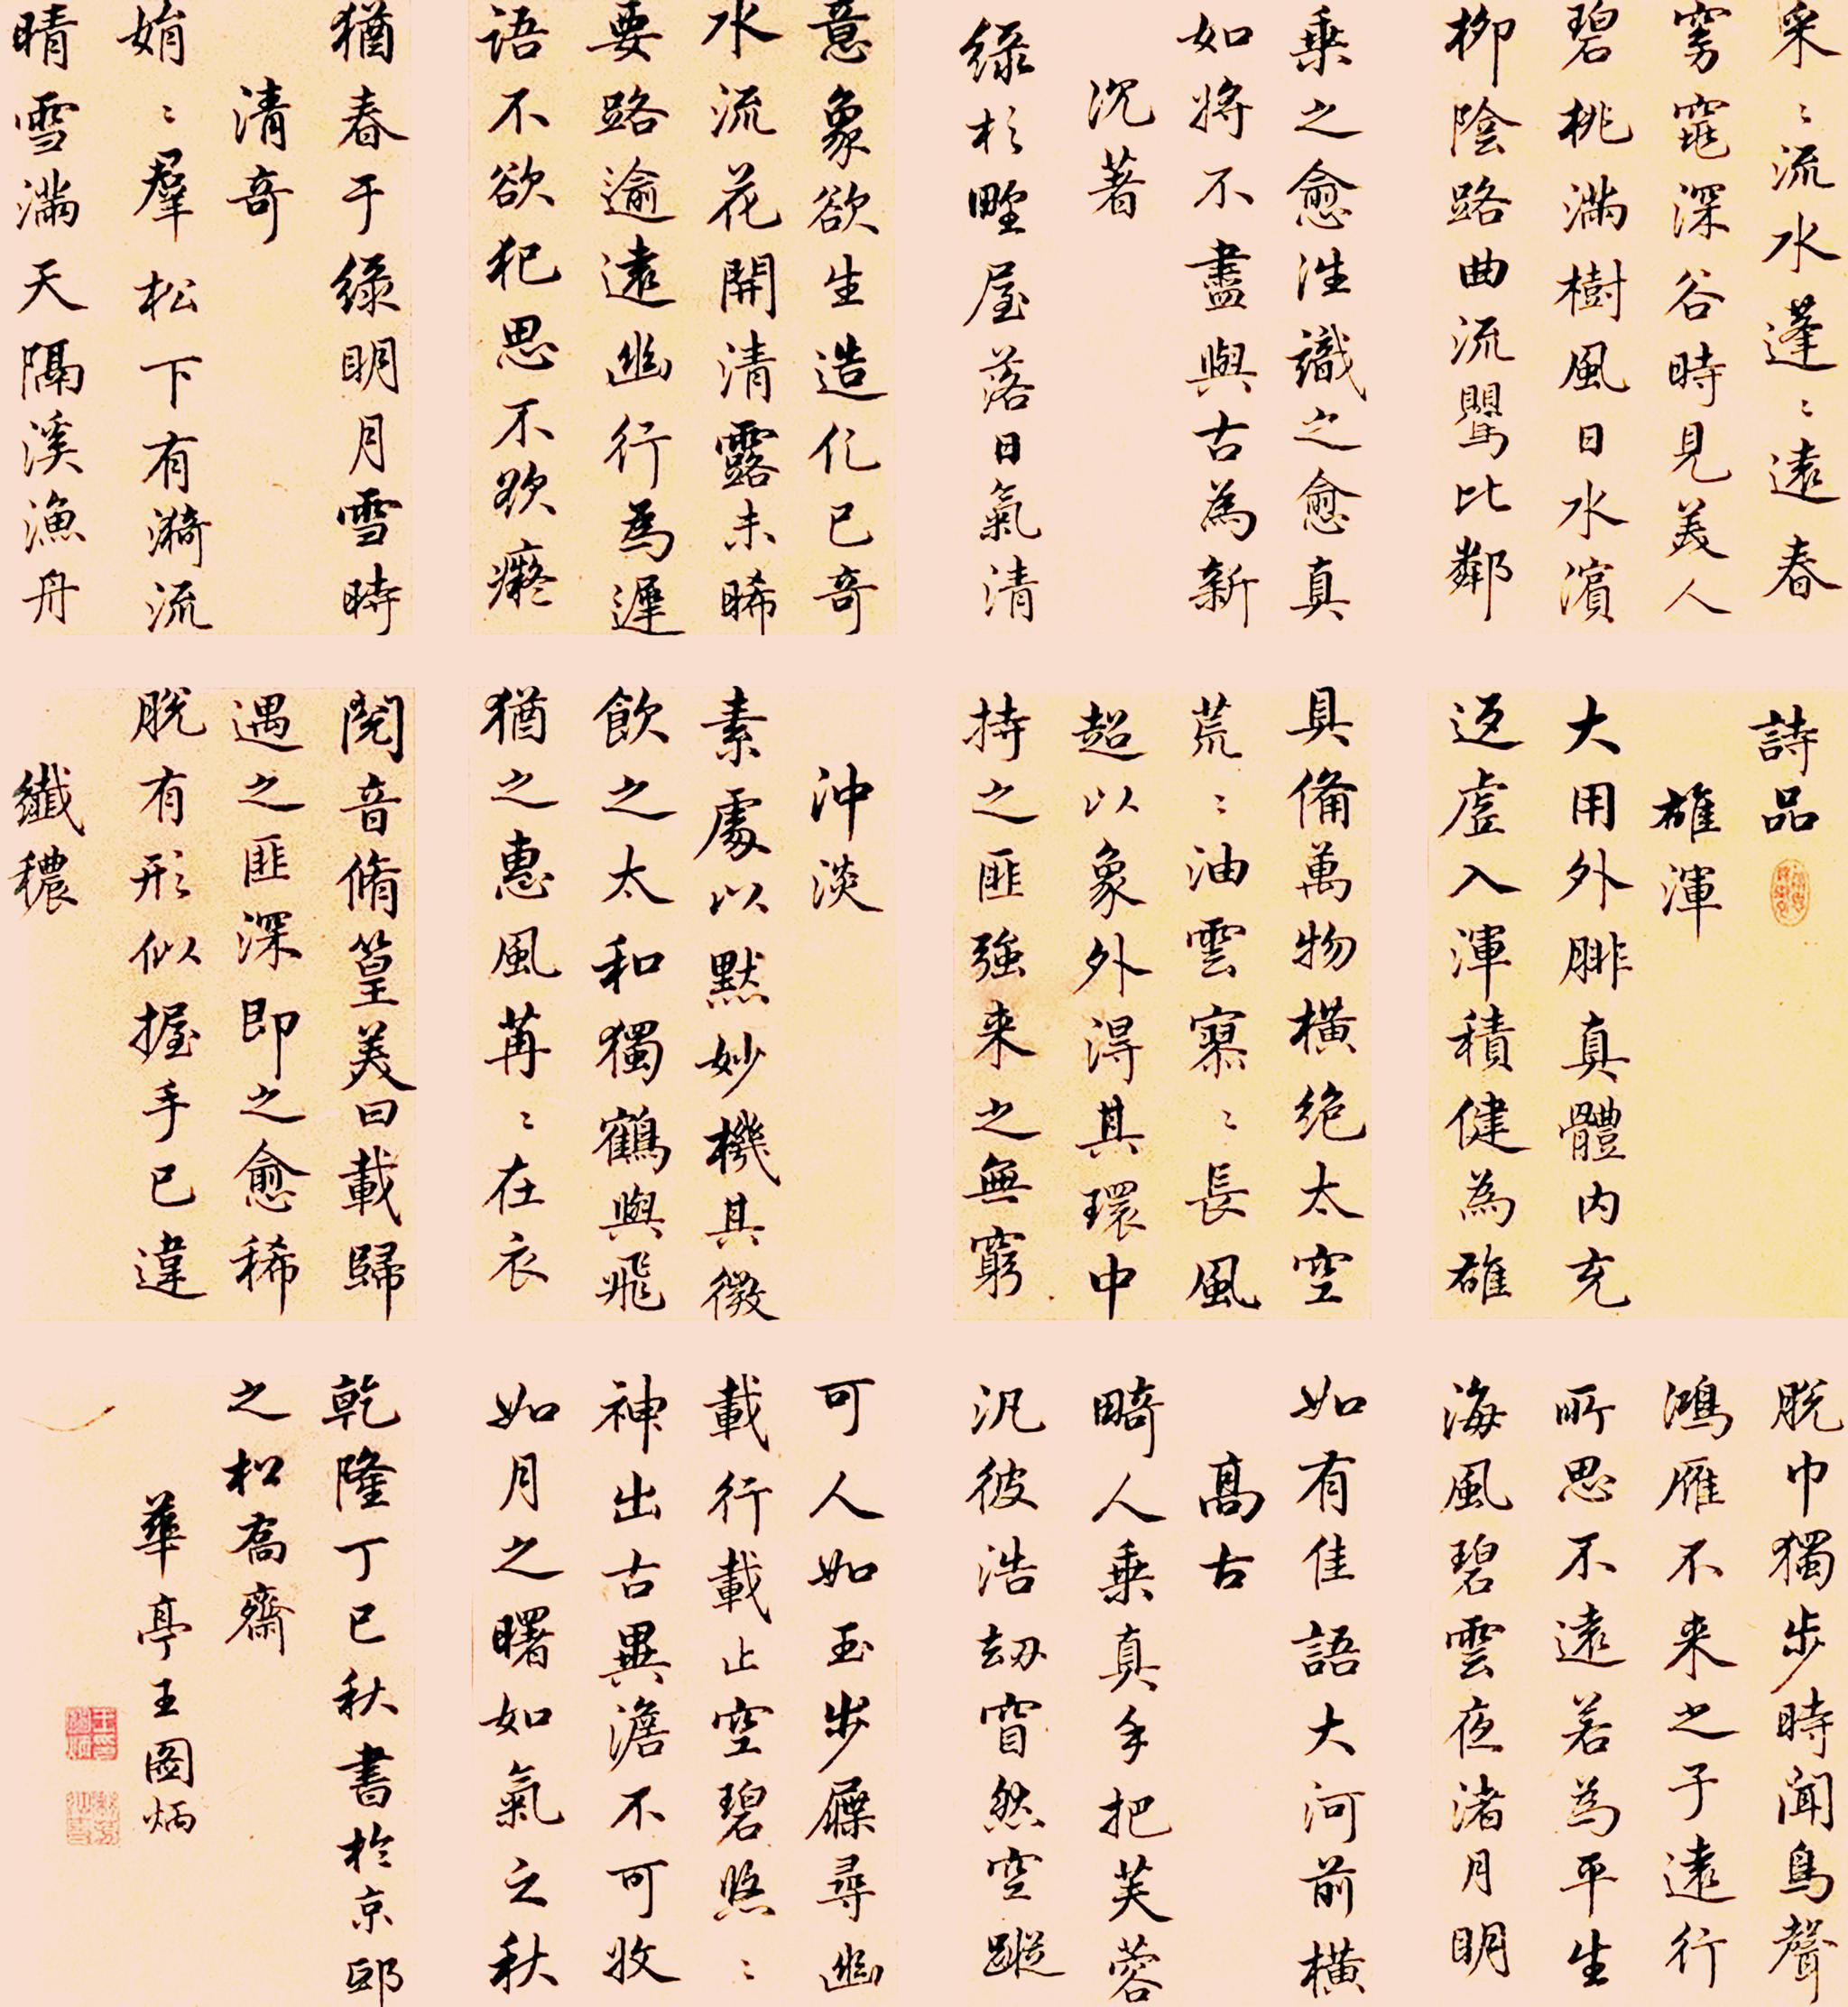 采〻流水蓬〻遠春
窈窕深谷時見美人
碧桃滿樹風日水濱
柳陰路曲流鶯比鄰
乗之愈往識之愈真
如將不盡與古為新
沉著
綠杉野屋落日氣清
意象欲生造化已奇
水流花開清露未晞
要路逾遠幽行為遲
語不欲犯思不欲癡
猶春于綠明月雪時
清奇
娟〻羣松下有漪流
晴雪滿天隔溪漁舟
詩品
雄渾
大用外腓真體內充
返虛入渾積健為雄
具備萬物橫絕太空
荒〻油雲寥〻長風
超以象外得其環中
持之匪強来之無窮
沖淡
素處以默妙機其微
飲之太和獨鶴與飛
猶之惠風苒〻在衣
閱音脩篁美曰載歸
遇之匪深即之愈稀
脫有形似握手已違
纖穠
脫巾獨步時聞鳥聲
鴻雁不来之子遠行
所思不遠若為平生
海風碧雲夜渚月明
如有佳語大河前橫
高古
畸人乗真手把芙蓉
汎彼浩劫窅然空蹤
可人如玉步屧尋幽
載行載止空碧悠〻
神出古異澹不可收
如月之曙如氣之秋
乾隆丁巳秋書於京邸
之松喬齋
華亭王圖炳